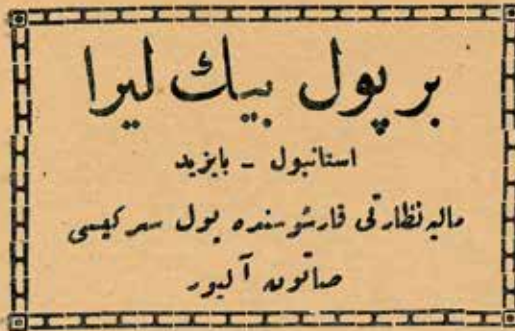 بر پول بيك ليرا
استانبول - بايزيد
ماليه نظارتى قارشوسنده پول سركيسى
صاتون آليور